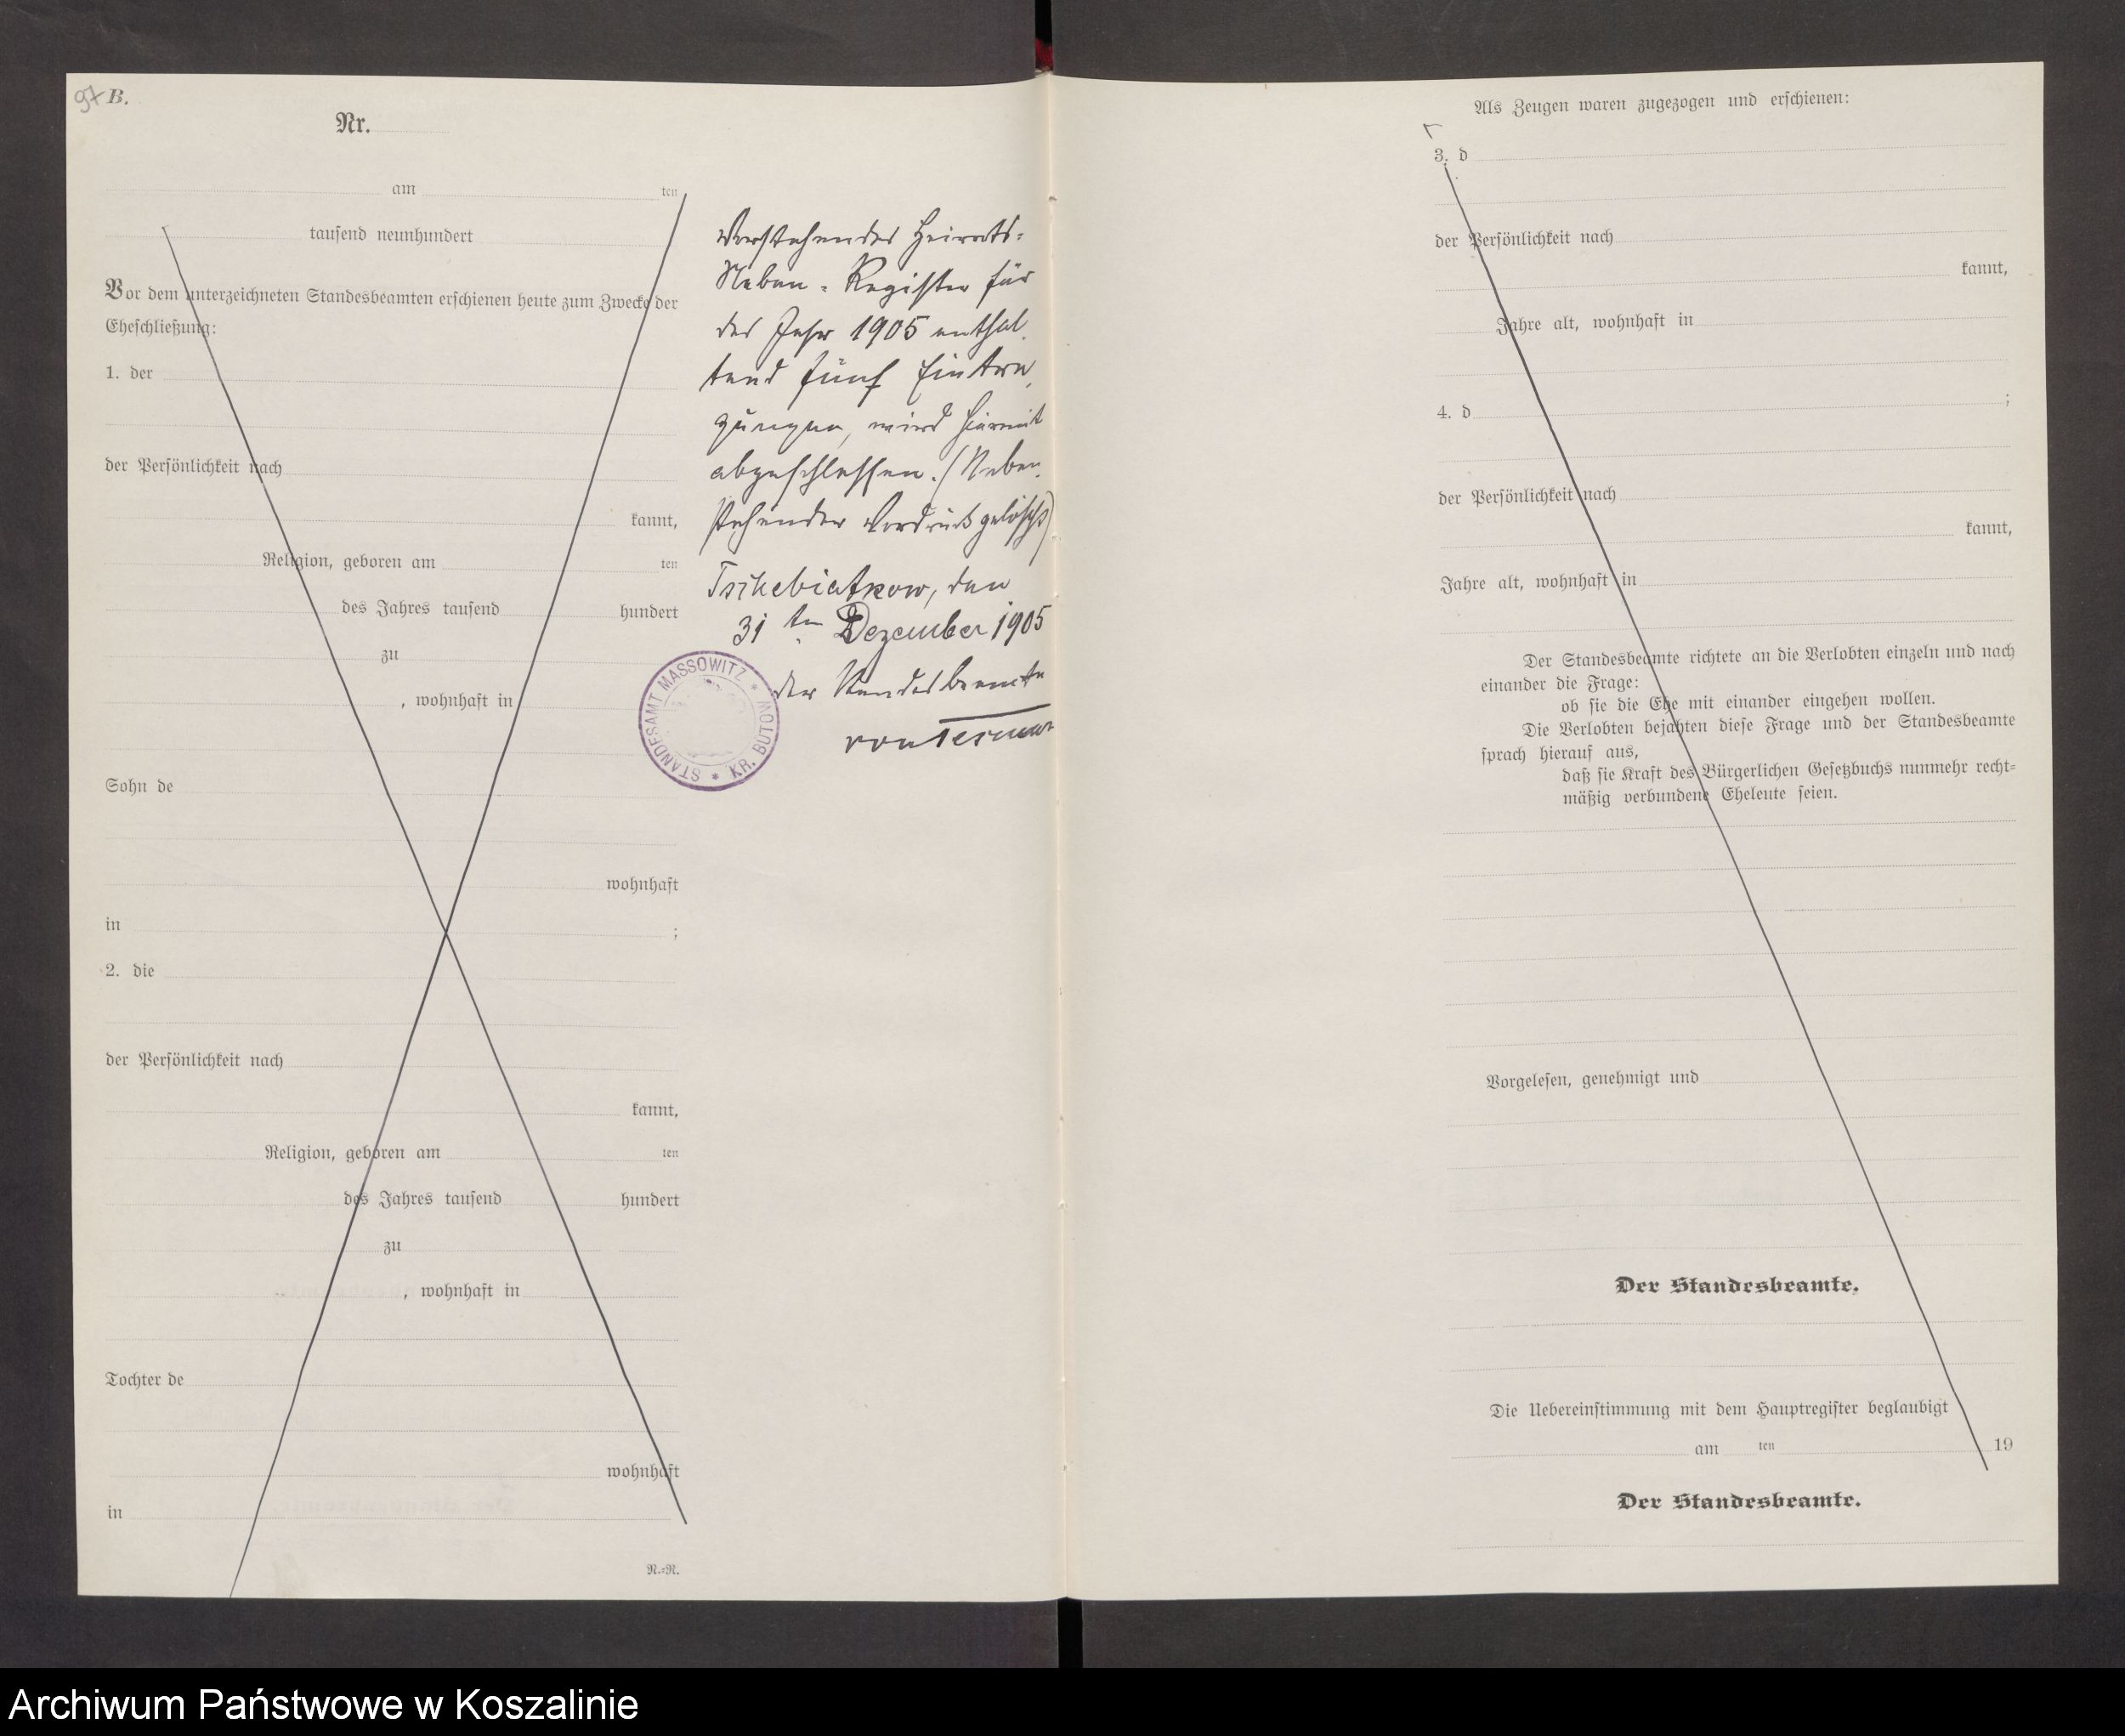 97 B.
Nr.
am ten
tausend neunhundert
Vor dem unterzeichneten Standesbeamten erschienen heute zum Zwecke der
Eheschließung:
1. der
der Persönlichkeit nach
kannt,
Religion, geboren am ten
des Jahres tausend hundert
zu
, wohnhaft in
Sohn de
wohnhaft
in ;
2. die
der Persönlichkeit nach
kannt,
Religion, geboren am ten
des Jahres tausend hundert
zu
, wohnhaft in
Tochter de
wohnhaft
in
N.=R.
Vorstehendes Heirats-
Neben-Register für
das Jahr 1905 enthal-
tend fünf Eintra-
gungen, wird hiermit
abgeschlossen. (Neben-
stehender Vordruck gelöscht)
den
31 ten Dezember 1905
der Standesbeamte
STANDESAMT MASSOWITZ * KR. BÜTOW *
Als Zeugen waren zugezogen und erschienen:
3. d
der Persönlichkeit nach
kannt,
Jahre alt, wohnhaft in
4. d ;
der Persönlichkeit nach
kannt,
Jahre alt, wohnhaft in
Der Standesbeamte richtete an die Verlobten einzeln und nach
einander die Frage:
ob sie die Ehe mit einander eingehen wollen.
Die Verlobten bejahten diese Frage und der Standesbeamte
sprach hierauf aus,
daß sie Kraft des Bürgerlichen Gesetzbuchs nunmehr recht=
mäßig verbundene Eheleute seien.
Vorgelesen, genehmigt und
Der Standesbeamte.
Die Uebereinstimmung mit dem Hauptregister beglaubigt
am ten 19
Der Standesbeamte.
Archiwum Państwowe w Koszalinie